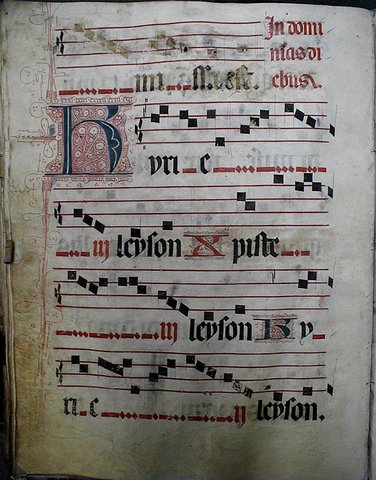 In domi
nicas di
ebus.
Kyri e
iij leyson Xpiste
iij leyson Ky
ri e iij leyson.